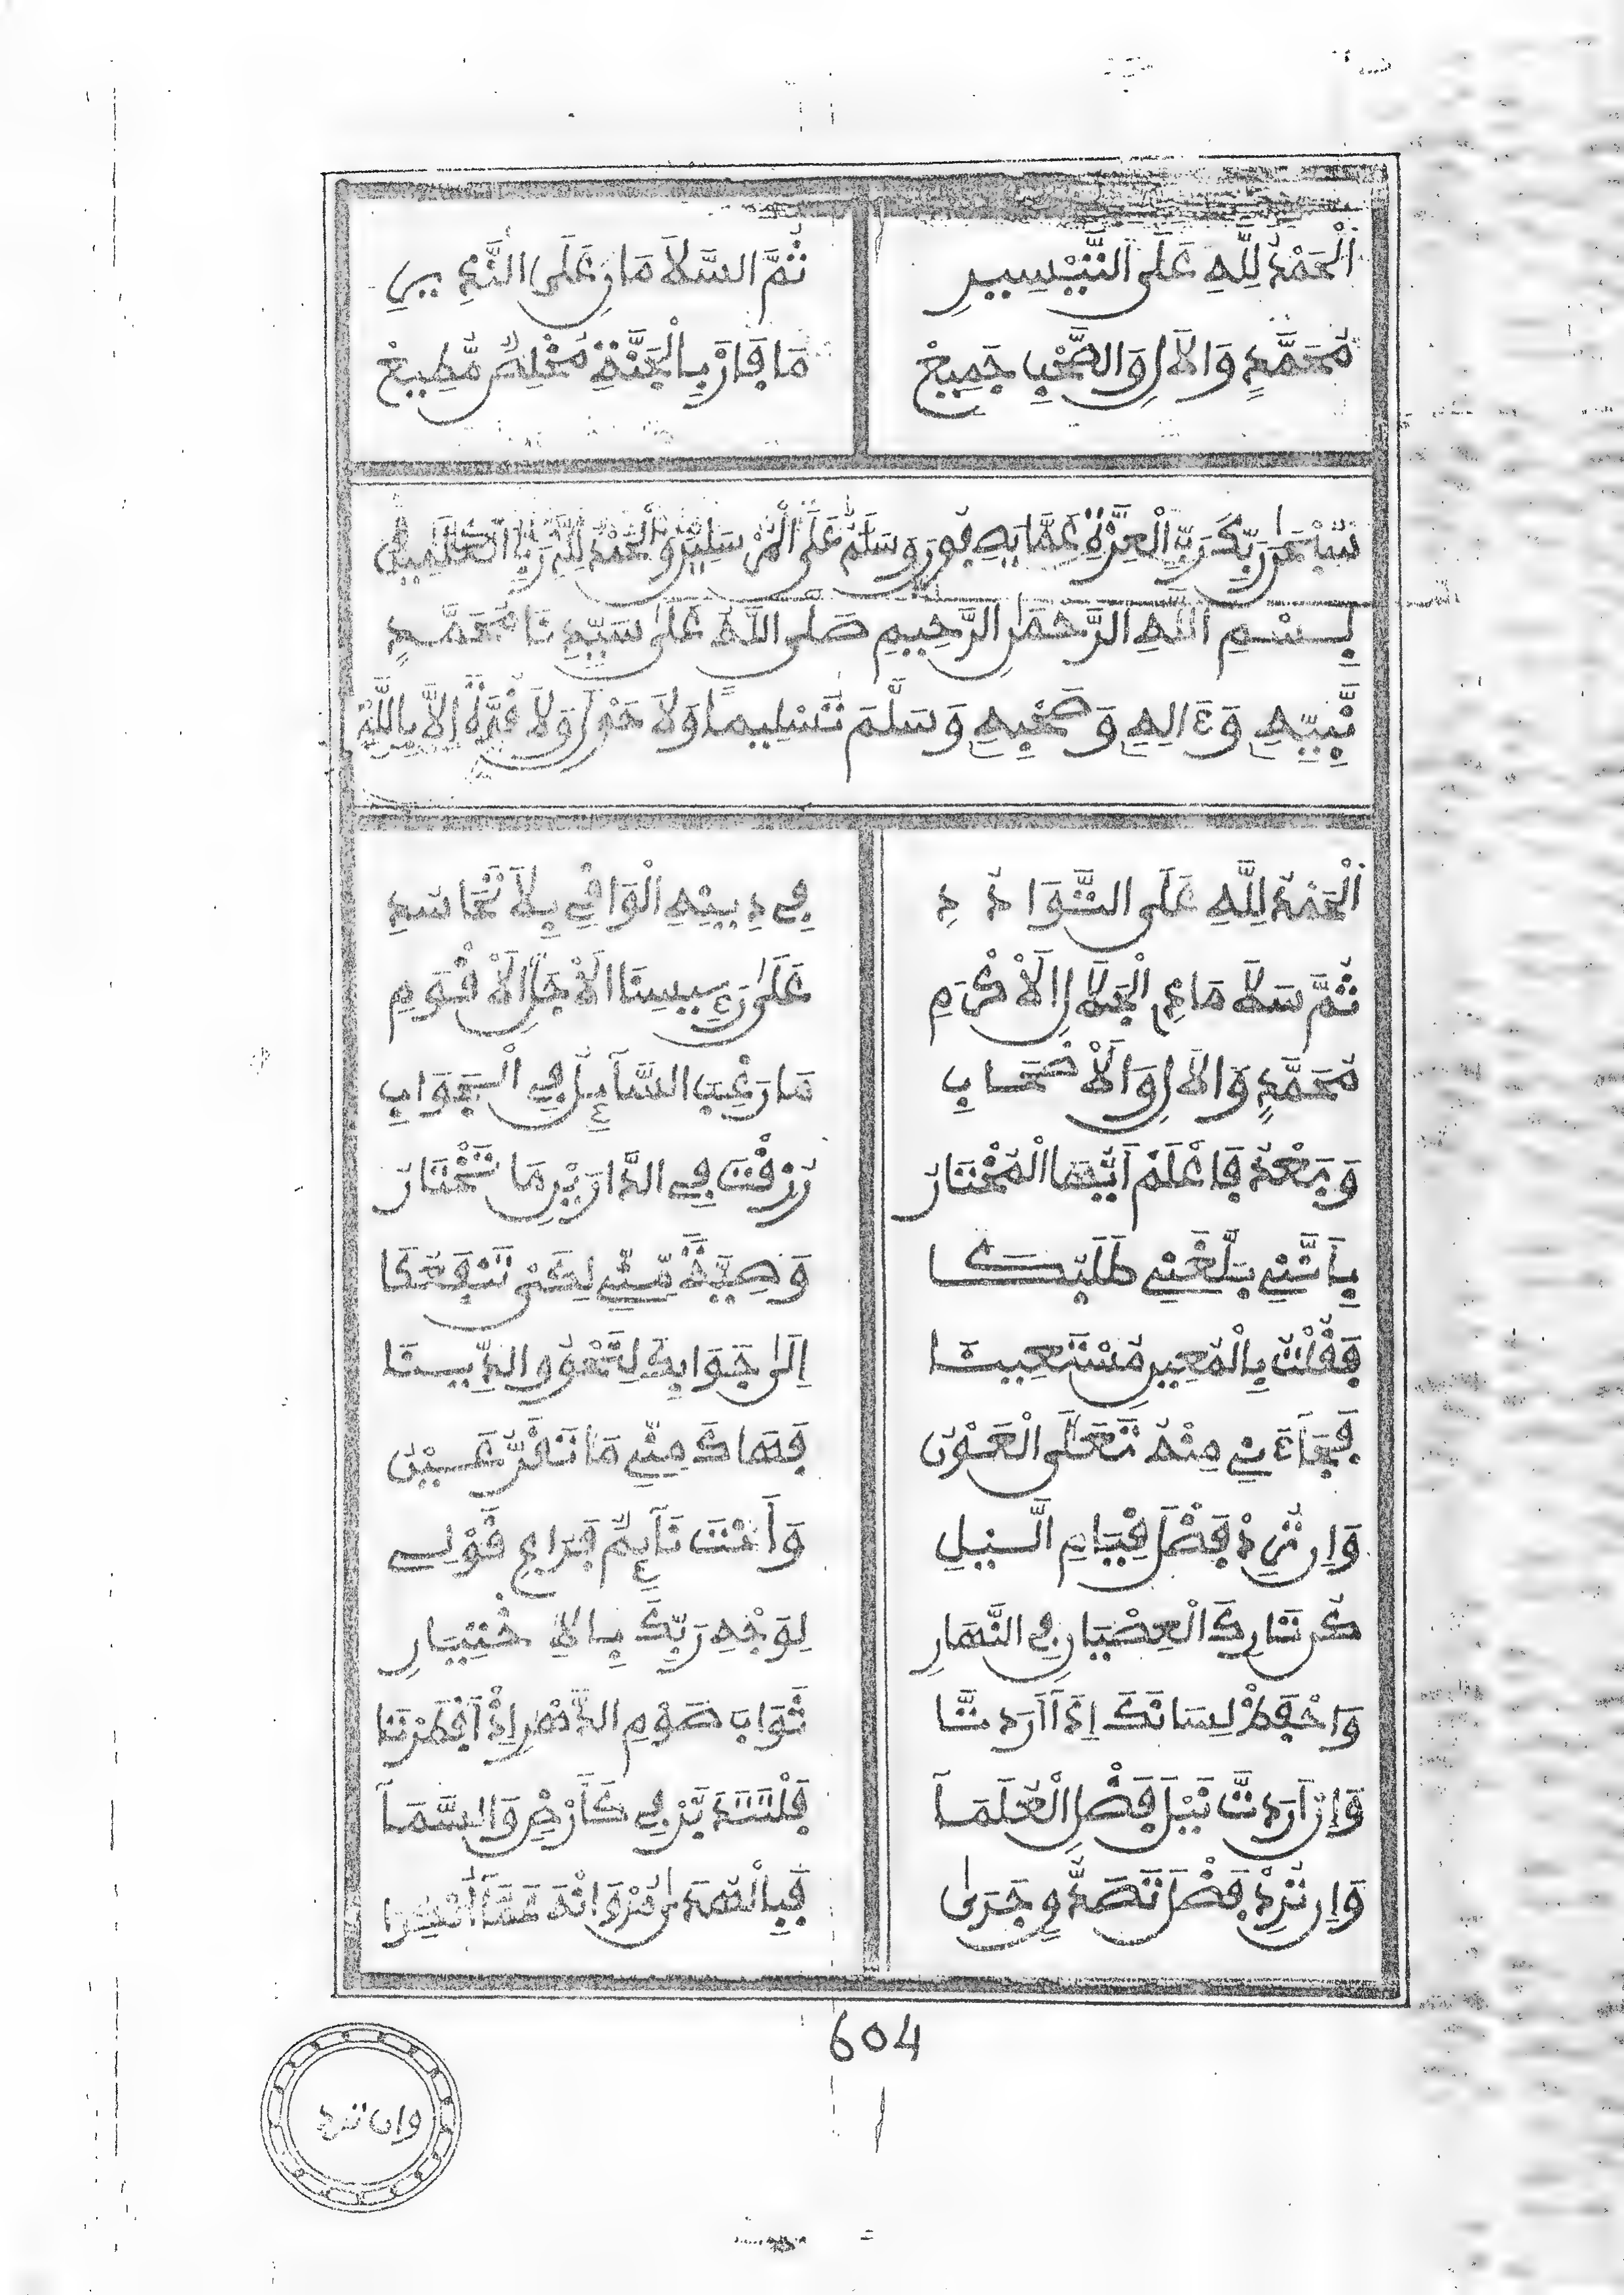 اَلْحَمْدُ لِلَّهِ عَلَى التَّيْسِيرِ ثُمَّ السَّلاَمَانِ عَلَى النَّذِيرِ
مُحَمَّدٍ وَالاَلِ وَالصَّحْبِ جَمِيعْ مَا فَازَ بِالْجَنَّةِ مُخْلِصٌ مُّطِيعْ
سُبْحَنَ رَبِّكَ رَبِّ الْعِزَّةِ عَمَّا يَصِفُونَ وَسَلَمٌ عَلَى الْمُرْسَلِينَ وَالْحَمْدُ لِلَّهِ رَبِّ الْعَلَمِينَ
بِسْمِ اللَّهِ الرَّحْمَنِ الرَّحِيمِ صَلَّى اللَّهُ عَلَى سَيِّدِنَا مُحَمَّدٍ
نَّبِيِّهِ وَءَالِهِ وَصَحْبِهِ وَسَلَّمَ تَسْلِيمًا وَلاَ حَوْلَ وَلاَ قُوَّةَ إِلاَّ بِاللَّهِ
اَلْحَمْدُ لِلَّهِ عَلَى التَّوَادُدِ فِي دِينِهِ الْوَاقِي بِلاَ تَحَاسُدِ
ثُمَّ سَلاَمَا ذِي الْجَلاَلِ الاَكْرَمِ عَلَى رَءِيسِنَا الاَجَلِّ الاَقْوَمِ
مُحَمَّدٍ وَالاَلِ وَالاَصْحَابِ مَا رَغِبَ السَّآئِلُ فِي الْجَوَابِ
وَبَعْدُ فَاعْلَمْ أَيُّهَا الْمُخْتَارُ رُزِقْتَ فِي الدَّارَيْنِ مَا تَخْتَارُ
بِأَنَّنِي بَلَّغَنِي طَلَبُكَا وَصِيَّةً مِّنِّي لِكَيْ تَنْفَعَكَا
فَقُلْتُ بِالْمُعِينِ مُسْتَعِينَا إِلَى جَوَابِكَ لِتَحْوُو الدِّينَا
فَجَاءَنِي مِنْهُ تَعَلَى الْعَوْنُ فَهَاكَ مِنِّي مَا تَقَرُّ عَيْنُ
وَإِن تُرِدْ فَضْلَ قِيَامِ الَّيْلِ وَأَنْتَ نَآئِمٌ فَرَاعِ قَوْلِي
كُن تَارِكَ الْعِصْيَانِ فِي النَّهَارِ لِوَجْهِ رَبِّكَ بِالاِخْتِيَارِ
وَاحْفَظْ لِسَانَكَ إِذَا أَرَدتَّا ثَوَابَ صَوْمِ الدَّهْرِ إِذْ أَفْطَرْتَا
وَإِنْ أَرَدتَّ نَيْلَ فَضْلِ الْعُلَمَآ فَلْتَتَدَبَّرْ فِي كَأَرْضٍ وَالسَّمَآ
وَإِن تُرِدْ فَضْلَ تَصَدُّقٍ جَرَى فَبِالْهُدَى مُرْ وَانْهَ عَمَّا أُنْكِرَا
604
وان ترد